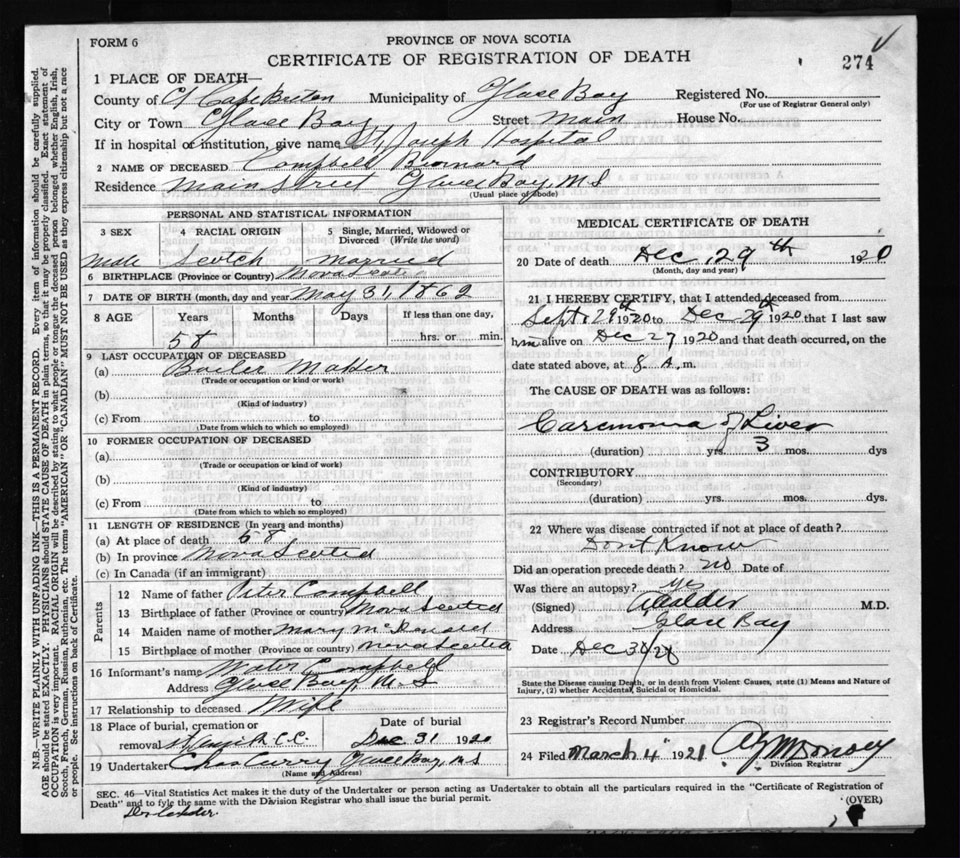 FORM 6
PROVINCE OF NOVA SCOTIA
CERTIFICATE OF REGISTRATION OF DEATH
274
1 PLACE OF DEATH—
County of Cape Breton Municipality of Glace Bay Registered No.
(For use of Registrar General only)
City or Town Glace Bay Street Main House No.
If in hospital or institution, give name St. Joseph Hospital
2 NAME OF DECEASED Campbell
Residence Main Street Glace Bay, N S
(Usual place of abode)
PERSONAL AND STATISTICAL INFORMATION
3 SEX 4 RACIAL ORIGIN 5 Single, Married, Widowed or Divorced (Write the word)
Male Scotch Married
6 BIRTHPLACE (Province or Country) Nova Scotia
7 DATE OF BIRTH (month, day and year) May 31, 1862
8 AGE Years Months Days If less than one day,
58 hrs. or min.
9 LAST OCCUPATION OF DECEASED
(a) Boiler Maker
(Trade or occupation or kind or work)
(b)
(Kind of industry)
(c) From to
(Date from which to which so employed)
10 FORMER OCCUPATION OF DECEASED
(a)
(Trade or occupation or kind of work)
(b)
(Kind of industry)
(c) From to
(Date from which to which so employed)
11 LENGTH OF RESIDENCE (In years and months)
(a) At place of death
(b) In province Nova Scotia
(c) In Canada (if an immigrant)
Parents
12 Name of father Peter Campbell
13 Birthplace of father (Province or country) Nova Scotia
14 Maiden name of mother Mary
15 Birthplace of mother (Province or country) Nova Scotia
16 Informant's name Campbell
Address Glace Bay, N S
17 Relationship to deceased Wife
18 Place of burial, cremation or Date of burial
removal C.C. Dec 31 1920
19 Undertaker Chas Curry Glace Bay, N S
(Name and Address)
MEDICAL CERTIFICATE OF DEATH
20 Date of death Dec, 29th 1920
(Month, day and year)
21 I HEREBY CERTIFY, that I attended deceased from
Sept 29th 1920 to Dec 29th 1920 that I last saw
him alive on Dec 27 1920 and that death occurred, on the
date stated above, at 8 A.m.
The CAUSE OF DEATH was as follows:
Carcinoma of Liver
(duration) yrs. 3 mos. dys
CONTRIBUTORY
(Secondary)
(duration) yrs. mos. dys.
22 Where was disease contracted if not at place of death?
Dont Know
Did an operation precede death? no Date of
Was there an autopsy? yes
(Signed) Calder M.D.
Address Glace Bay
Date Dec 30/20
State the Disease causing Death, or in death from Violent Causes, state (1) Means and Nature of
Injury, (2) whether Accidental, Suicidal or Homicidal.
23 Registrar's Record Number
24 Filed March 4 1921
Division Registrar
SEC. 46—Vital Statistics Act makes it the duty of the Undertaker or person acting as Undertaker to obtain all the particulars required in the "Certificate of Registration of
Death" and to fyle the same with the Division Registrar who shall issue the burial permit.
(OVER)
N.B.—WRITE PLAINLY WITH UNFADING INK—THIS IS A PERMANENT RECORD. Every item of information should be carefully supplied.
AGE should be stated EXACTLY. PHYSICIANS should STATE CAUSE OF DEATH in plain terms, so that it may be properly classified. Exact statement of
OCCUPATION is very important. RACIAL ORIGIN will be described by stating to what people or tongue the deceased person belonged whether English, Irish,
Scotch, French, German, Russian, Ruthenian, etc. The terms "AMERICAN" OR "CANADIAN" MUST NOT BE USED as they express citizenship but not a race
or people. See instructions on back of Certificate.